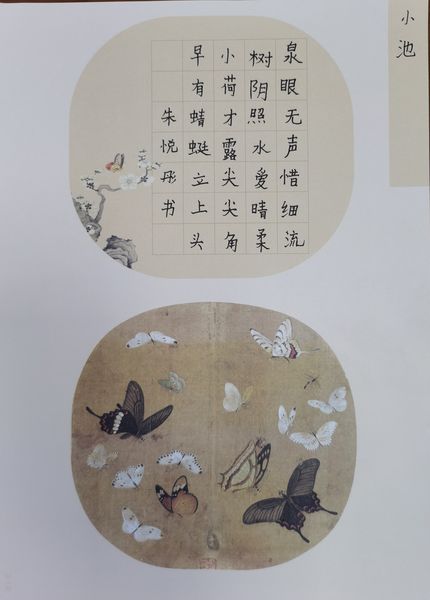 小池
泉眼无声惜细流
树阴照水爱晴柔
小荷才露尖尖角
早有蜻蜓立上头
朱悦彤书